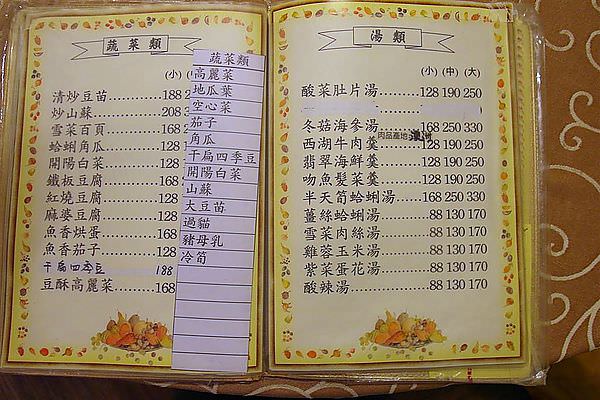 蔬菜類
(小)
清炒豆苗..........188 2
炒山蘇..............208 3
雪菜百頁..........168
蛤蜊角瓜..........128
開陽白菜..........128
鐵板豆腐..........168
紅燒豆腐..........128
麻婆豆腐..........128
魚香烘蛋..........168
魚香茄子..........128
干扁四季豆 188
豆酥高麗菜......168
蔬菜類
高麗菜
地瓜葉
空心菜
茄子
角瓜
干扁四季豆
開陽白菜
山蘇
大豆苗
過貓
豬母乳
冷筍
湯類
(小) (中) (大)
酸菜肚片湯......128 190 250
冬菇海參湯......168 250 330
肉品產地
西湖牛肉羹......128 190 250
翡翠海鮮羹......128 190 250
吻魚髮菜羹......128 190 250
半天筍蛤蜊湯..168 250 330
薑絲蛤蜊湯........88 130 170
雪菜肉絲湯........88 130 170
雞蓉玉米湯........88 130 170
紫菜蛋花湯........88 130 170
酸辣湯................88 130 170